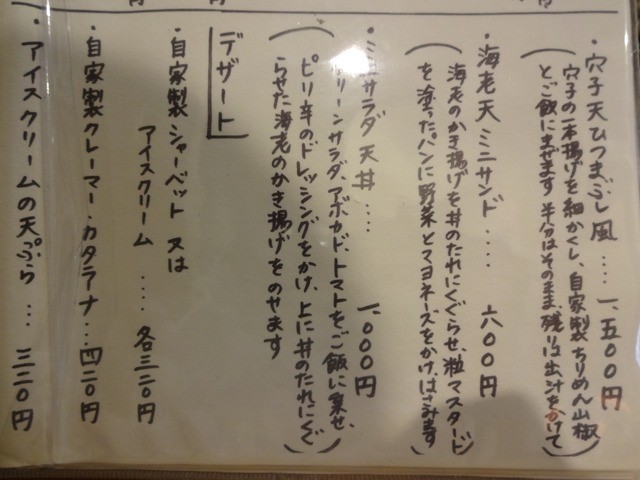 ・穴子天ひつまぶし風....一、五〇〇円
(穴子の一本揚げを細かくし、自家製ちりめん山椒
とご飯にまぜます 半分はそのまま、残りは出汁をかけて)
・海老天ミニサンド....六〇〇円
(海老のかき揚げを丼のたれにくぐらせ、粒マスタード
を塗ったパンに野菜とマヨネーズをかけ、はさみます)
・ミニサラダ天丼....一、〇〇〇円
(グリーンサラダ、アボカド、トマトをご飯に乗せ、
ピリ辛のドレッシングをかけ、上に丼のたれにくぐ
らせた海老のかき揚げをのせます)
デザート
・自家製シャーベット又は
アイスクリーム....各三二〇円
・自家製クレーマ・カタラナ...四二〇円
・アイスクリームの天ぷら...三二〇円